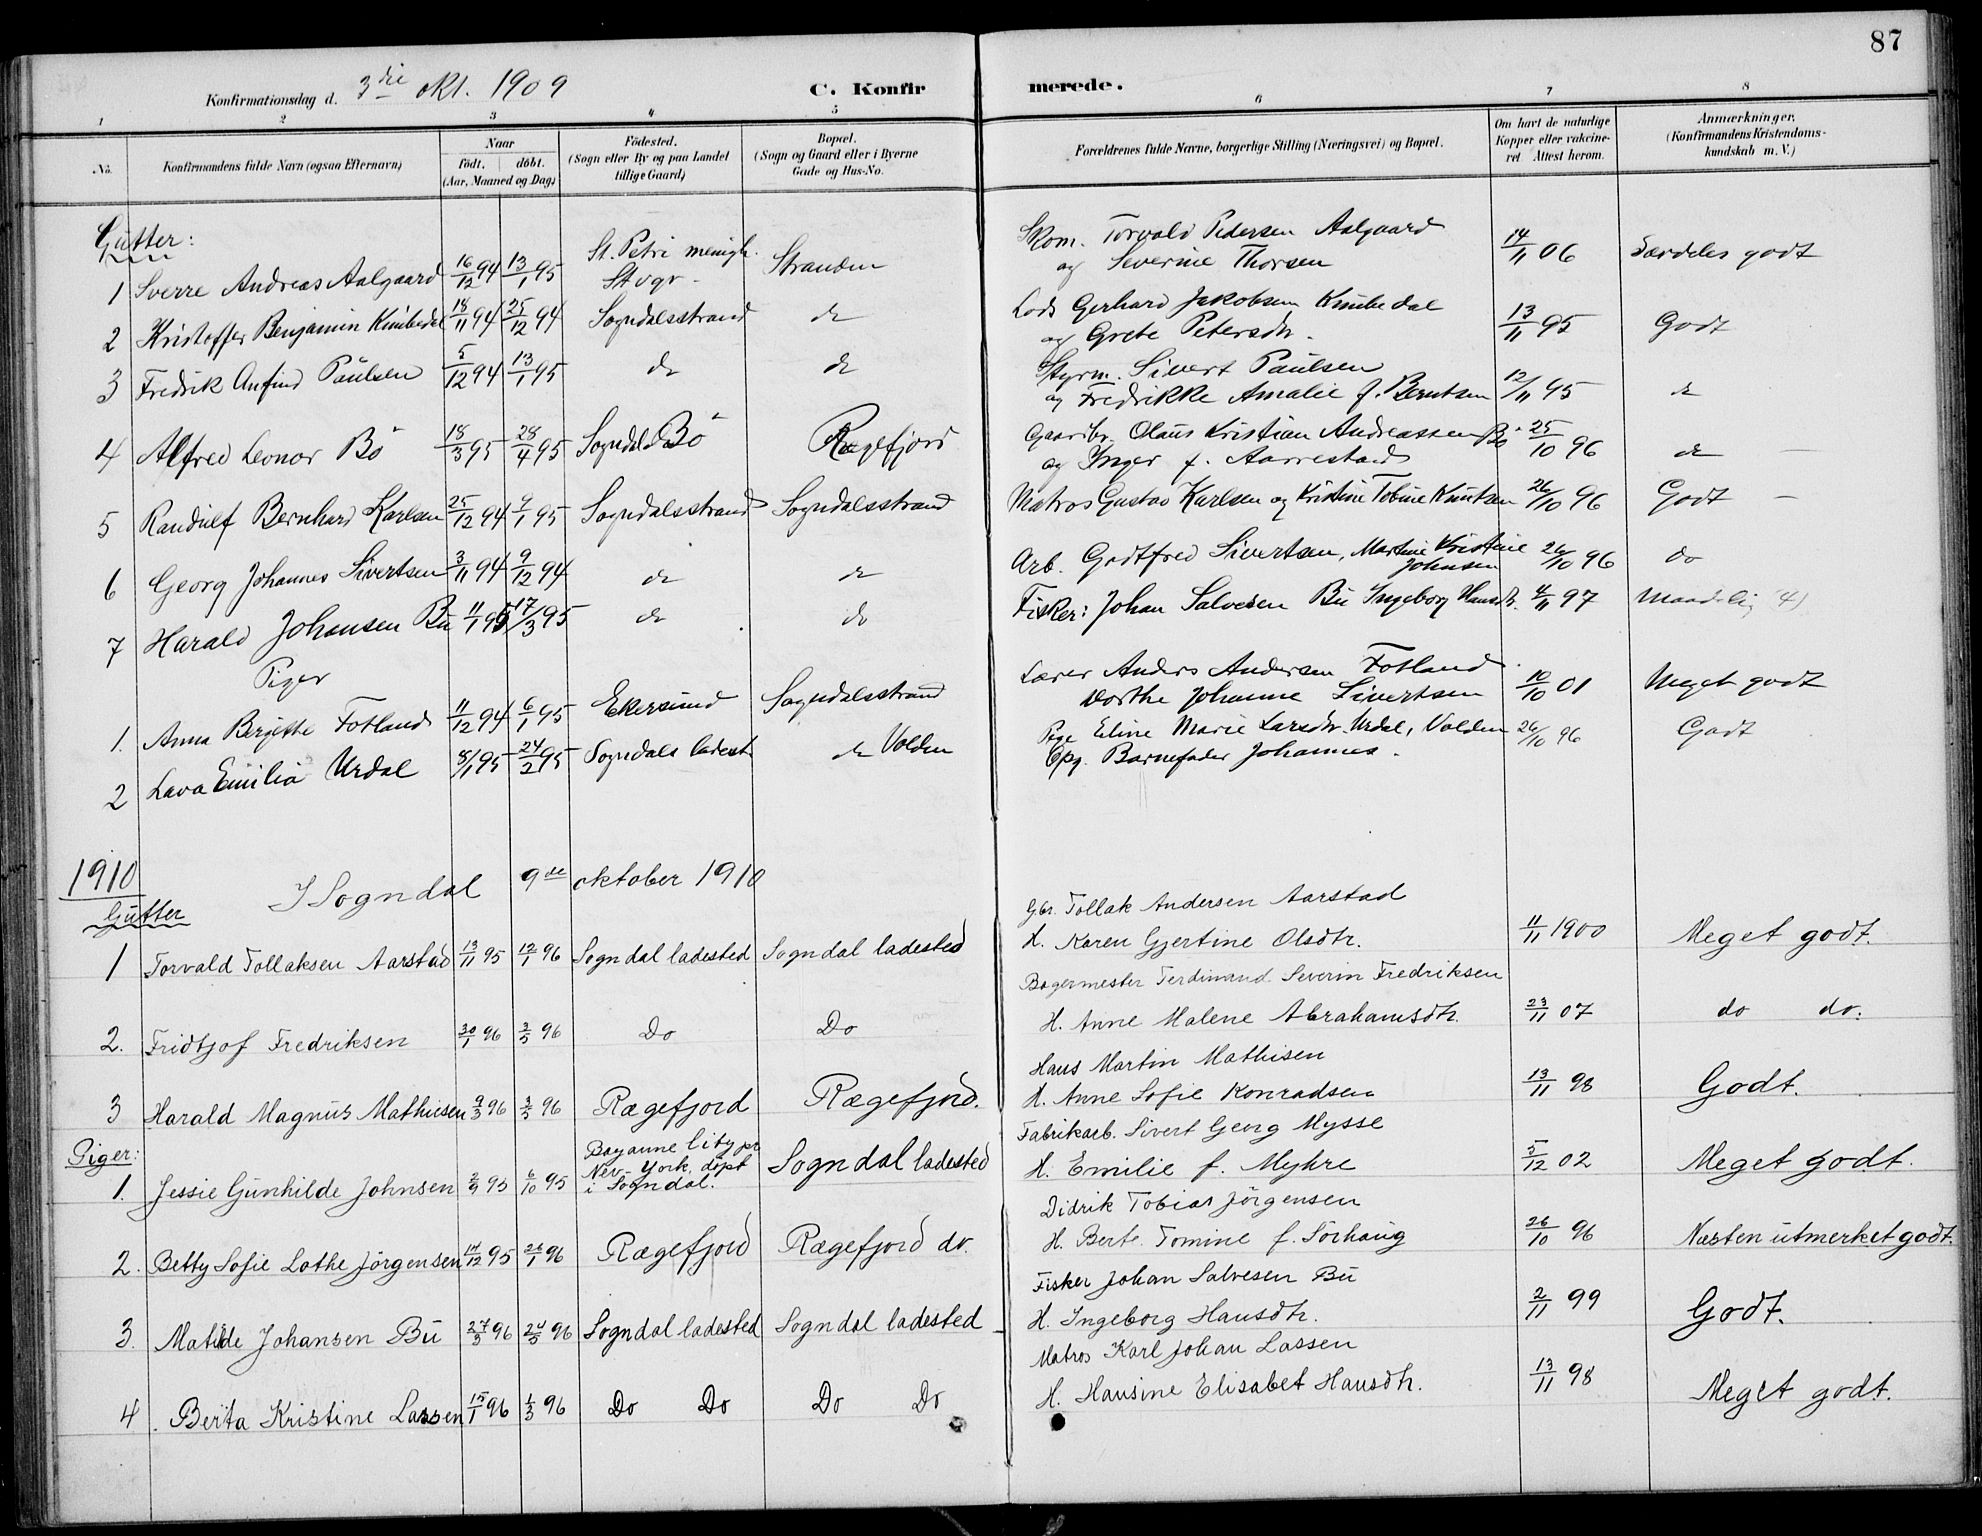 87
Konfirmationsdag d. 3die okt. 1909
C. Konfirmerede.
1 2 3 4 5 6 7 8
No. Konfirmandens fulde Navn (ogsaa Efternavn) Naar födt. döbt. (Aar, Maaned og Dag) Födested. (Sogn eller By og paa Landet tillige Gaard) Bopæl. (Sogn og Gaard eller i Byerne Gade og Hus-No. Forældrenes fulde Navne, borgerlige Stilling (Næringsvei) og Bopæl. Om havt de naturlige Kopper eller vakcineret. Attest herom. Anmærkninger. (Konfirmandens Kristendomskundskab m. V.)
Gutter:
1 Sverre Andreas Aalgaard 16/12 94 13/1 95 St. Petri menigh. Stvgr. Stranden Skom. Torvald Pedersen Aalgaard og Severine Thorsen 14/11 06 Særdeles godt
2 Kristoffer Benjamin Knubedal 18/11 94 25/12 94 Sogndalsstrand do Lods Gerhard Jakobsen Knubedal og Grete Petersdr. 13/11 95 Godt
3 Fredrik Anfind Paulsen 5/12 94 13/1 95 do do Styrm. Sivert Paulsen og Fredrikke Amalie f. Berntsen 12/11 95 do
4 Alfred Leonor Bö 18/3 95 28/4 95 Sogndal Bö Rægefjord Gaardbr. Olaus Kristian Andreassen Bö og Inger f. Aarrestad 25/10 96 do —
5 Randulf Bernhard Karlsen 25/12 94 9/1 95 Sogndalsstrand Sogndalsstrand Matros Gustav Karlsen og Kristine Tobine Knutsen 26/10 96 Godt —
6 Georg Johannes Sivertsen 3/11 94 9/12 94 do do Arb. Godtfred Sivertsen, Martine Kristine Johnsen 26/10 96 do
7 Harald Johansen Bu 11/1 95 17/3 95 do do Fisker: Johan Salvesen Bu Ingeborg Hansdtr. 4/11 97 Maadelig (4)
Piger
1. Anna Bergitte Fotland 11/12 94 6/1 95 Ekersund Sogndalsstrand Lærer Anders Andersen Fotland Dorthe Johanne Sivertsen 10/10 01 Meget godt
2 Lava Emilia Urdal 8/1 95 24/2 95 Sogndals ladest do Volden Pige Eline Marie Larsdtr. Urdal, Volden Opg. Barnefader Johannes. 26/10 96 Godt
1910 I Sogndal 9de oktober 1910
Gutter
1 Torvald Tollaksen Aarstad 13/11 95 12/1 96 Sogndal ladested Sogndal ladested Gbr. Tollak Andersen Aarstad H. Karen Gjertine Olsdtr. 11/11 1900 Meget godt.
2. Fridtjof Fredriksen 30/1 96 3/5 96 Do Do Bagermester Ferdinand Severin Fredriksen H. Anne Malene Abrahamsdtr. 23/11 07 do do.
3 Harald Magnus Mathisen 9/3 96 3/5 96 Rægefjord Rægefjord. Hans Martin Mathisen H. Anne Sofie Konradsen 13/11 98 Godt.
Piger:
1. Jessie Gunhilde Johnsen 2/9 95 6/10 95 Bayonne City pr New-York, döpt i Sogndal. Sogndal ladested Fabrikarb. Sivert Georg Mysse H. Emilie f. Myhre 5/12 02 Meget godt.
2. Betty Sofie Lothe Jörgensen 14/12 95 26/1 96 Rægefjord Rægefjord do. Didrik Tobias Jörgensen H. Berte Tomine f. Sörhaug 26/10 96 Næsten utmerket godt.
3. Matilde Johansen Bu 27/3 96 24/5 96 Sogndal ladested Sogndal ladested Fisker Johan Salvesen Bu H. Ingeborg Hansdtr. 2/11 99 Godt.
4. Berta Kristine Lassen 15/1 96 1/3 96 Do Do Do Do Matros Karl Johan Lassen H. Hansine Elisabet Hansdtr. 13/11 98 Meget godt.